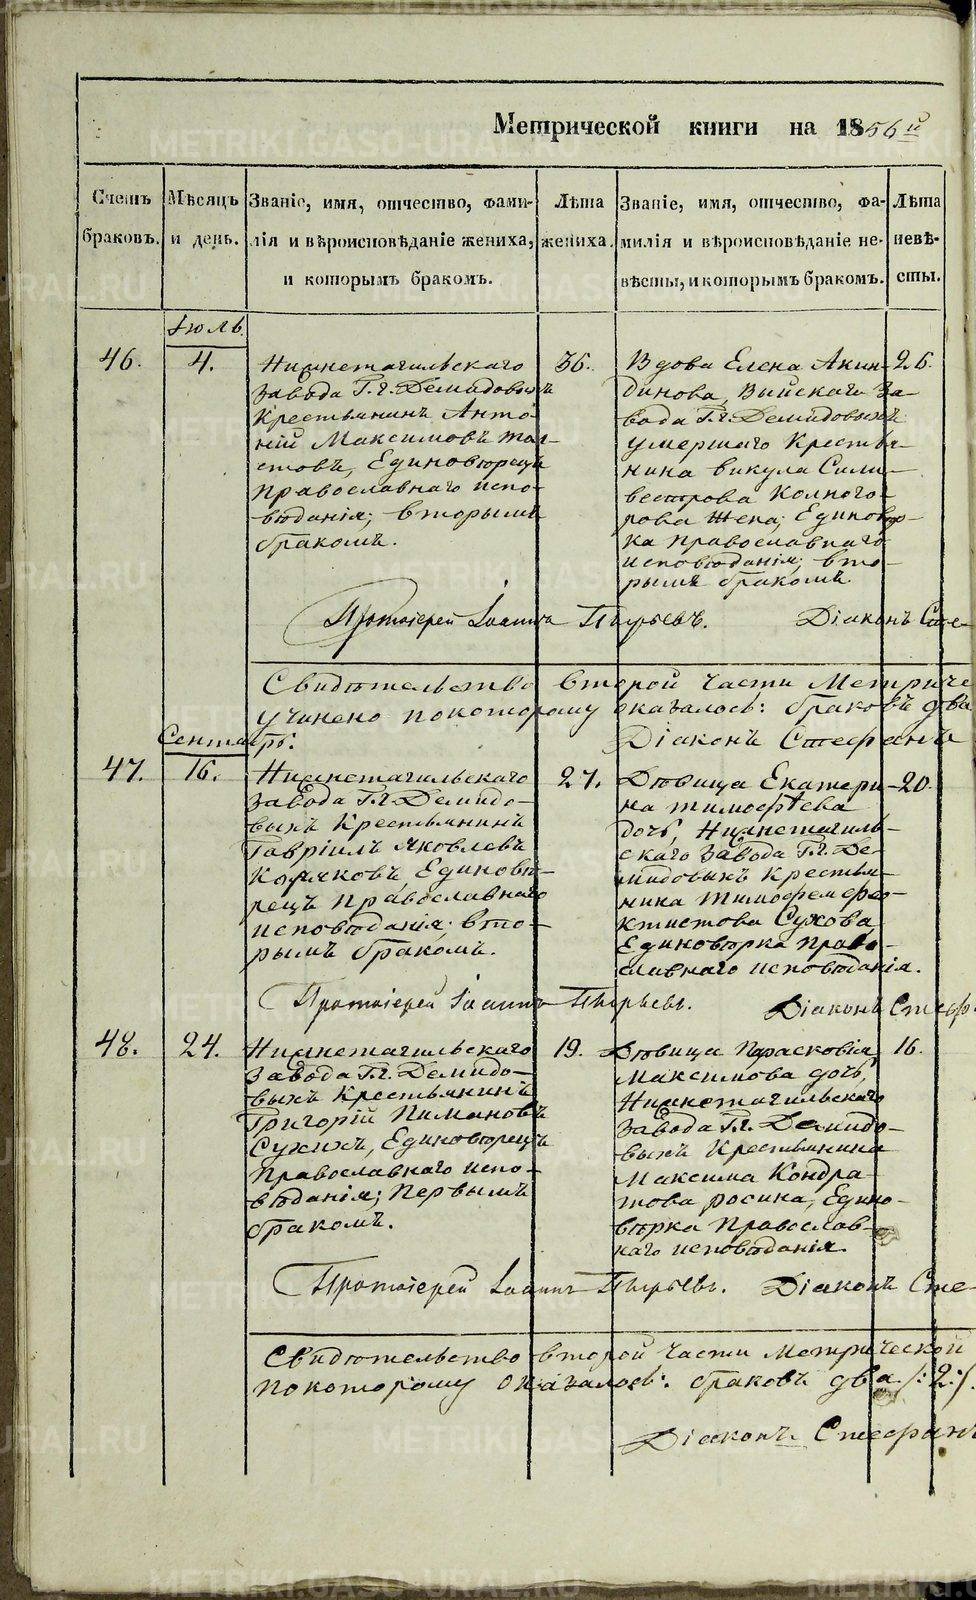 Метрической книги на 1856й
Счетъ браковъ.
Мѣсяцъ и день.
Званіе, имя, отчество, фами-
лія и вѣроисповѣданіе жениха,
и которымъ бракомъ.
Лѣта жениха.
Званіе, имя, отчество, фа-
милія и вѣроисповѣданіе не-
вѣсты, и которымъ бракомъ.
Лѣта невѣ-
сты.
Іюль.
46.
4.
Нижнетагильскаго
завода Г.г. Демидовыхъ
Крестьянинъ Анто-
ній Максимовъ Тол-
стовъ, Единовѣрецъ
Православнаго испо-
вѣданія; вторымъ
бракомъ.
36.
Вдова Елена Акин-
динова, Выйскаго за-
вода Г.г. Демидовыхъ
умершаго Крестья-
нина викула Сили-
вестрова Колного-
рова жена; Единовѣр-
ка православнаго
исповѣданія; вто-
рымъ бракомъ.
26.
Протоіерей Іоаннъ Пырьевъ. Діаконъ Сте-
Свидѣтельство второй части Метриче
учинено покоторому оказалось: браковъ два
Діаконъ Стефанъ
Сентябрь:
47.
16.
Нижнетагильскаго
завода Г.г. Демидо-
выхъ Крестьянинъ
Гавріилъ Яковлевъ
Единовѣ-
рецъ православнаго
исповѣданія; вто-
рымъ бракомъ.
27.
Дѣвица Екатери-
на тимофѣева
дочь, Нижнетагиль-
скаго завода Г.г. Де-
мидовыхъ крестья-
нина тимофея фео-
ктистова Сухова
Единовѣрка право-
славнаго исповѣданія.
20.
Протоіерей Іоаннъ Пырьевъ. Діаконъ Стеф.
48.
24.
Нижнетагильскаго
завода Г.г. Демидо-
выхъ Крестьянинъ
Григорій Пимановъ
Сухихъ, Единовѣрецъ
Православнаго испо-
вѣданія; Первымъ
бракомъ.
19.
Дѣвица Парасковія
Максимова дочь,
Нижнетагильскаго
завода Г.г. Демидо-
выхъ Крестьянина
Максима Кондра-
това росина, Едино-
вѣрка Православ-
наго исповѣданія.
16.
Протоіерей Іоаннъ Пырьевъ. Діаконъ Сте-
Свидѣтельство второй части Метрической
покоторому оказалось: браковъ два /:2:/.
Діаконъ Стефанъ